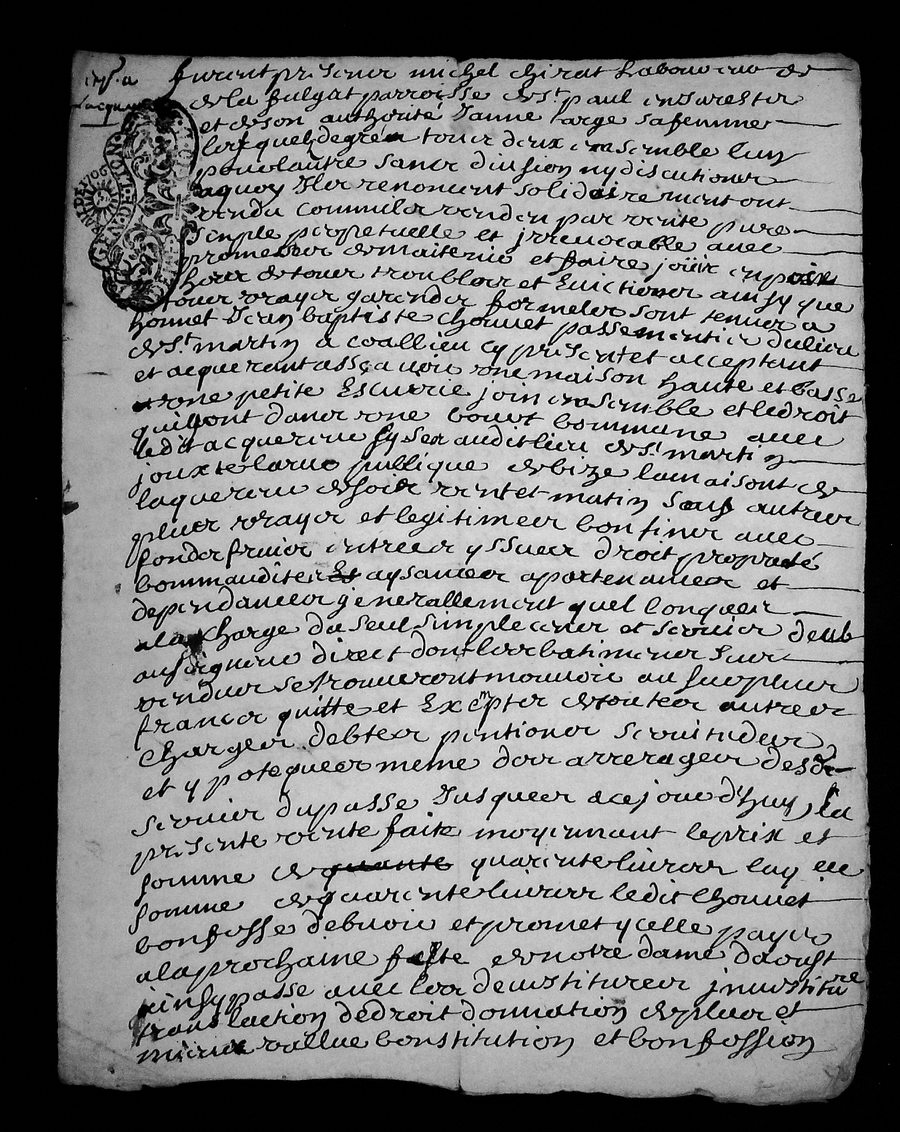 furent presens michel chirat laboureur de
de la fulgat parroisse de st paul en Jarest
et de son authorité Janne large sa femme
lesquels de gré tous deux ensemble l'un
pour l'autre sans division ny discution
a quoy Ils renoncent solidairement ont
vendu comme ils vendent par vente pure
simple perpetuelle et jrrevocable avec
promesse de maitenir et faire jouir en paix
hors de tous troubles et Evictions ainsy que
tous vrays garends formels sont tenus a
honnet Jean baptiste Chonnet passementier du lieu
de st martin a coallieu cy present et acceptant
et acquerant assçavoir une maison haute et basse
une petite Escurie join ensemble et le droit
qu'ils ont dans une commune avec
ledit acquereur sys audit lieu de st martin
jouxte la rue publique de bize la maison de
l'aquereur de soir vent et matin sauf autres
plus vrays et legitimes confins avec
fonds fruics entrees yssues droit propriete
commaudites aysances apartenances et
dependances generallement quelconques
a la charge du seul simple cens et servis deub
au seigneur direct dont les batiments
vendus se trouveront mouvoir au surplus
francs quitte et Exempts de toutes autres
charges debtes pentions servitudes
et ypoteques meme des arrerages desd
servis du passe Jusques a ce jourd'huy, la
presente vente faite moyennant le prix et
somme de quarente livres laquelle
somme de quarente livres ledit Chonnet
confesse debvoir et promet ycelle payer
a la prochaine feste de notre dame d'aoust
ainsy passe avec les devestitures jnvestiture
translaction de droit donnation de plus et
mieux vallue constitution et confession